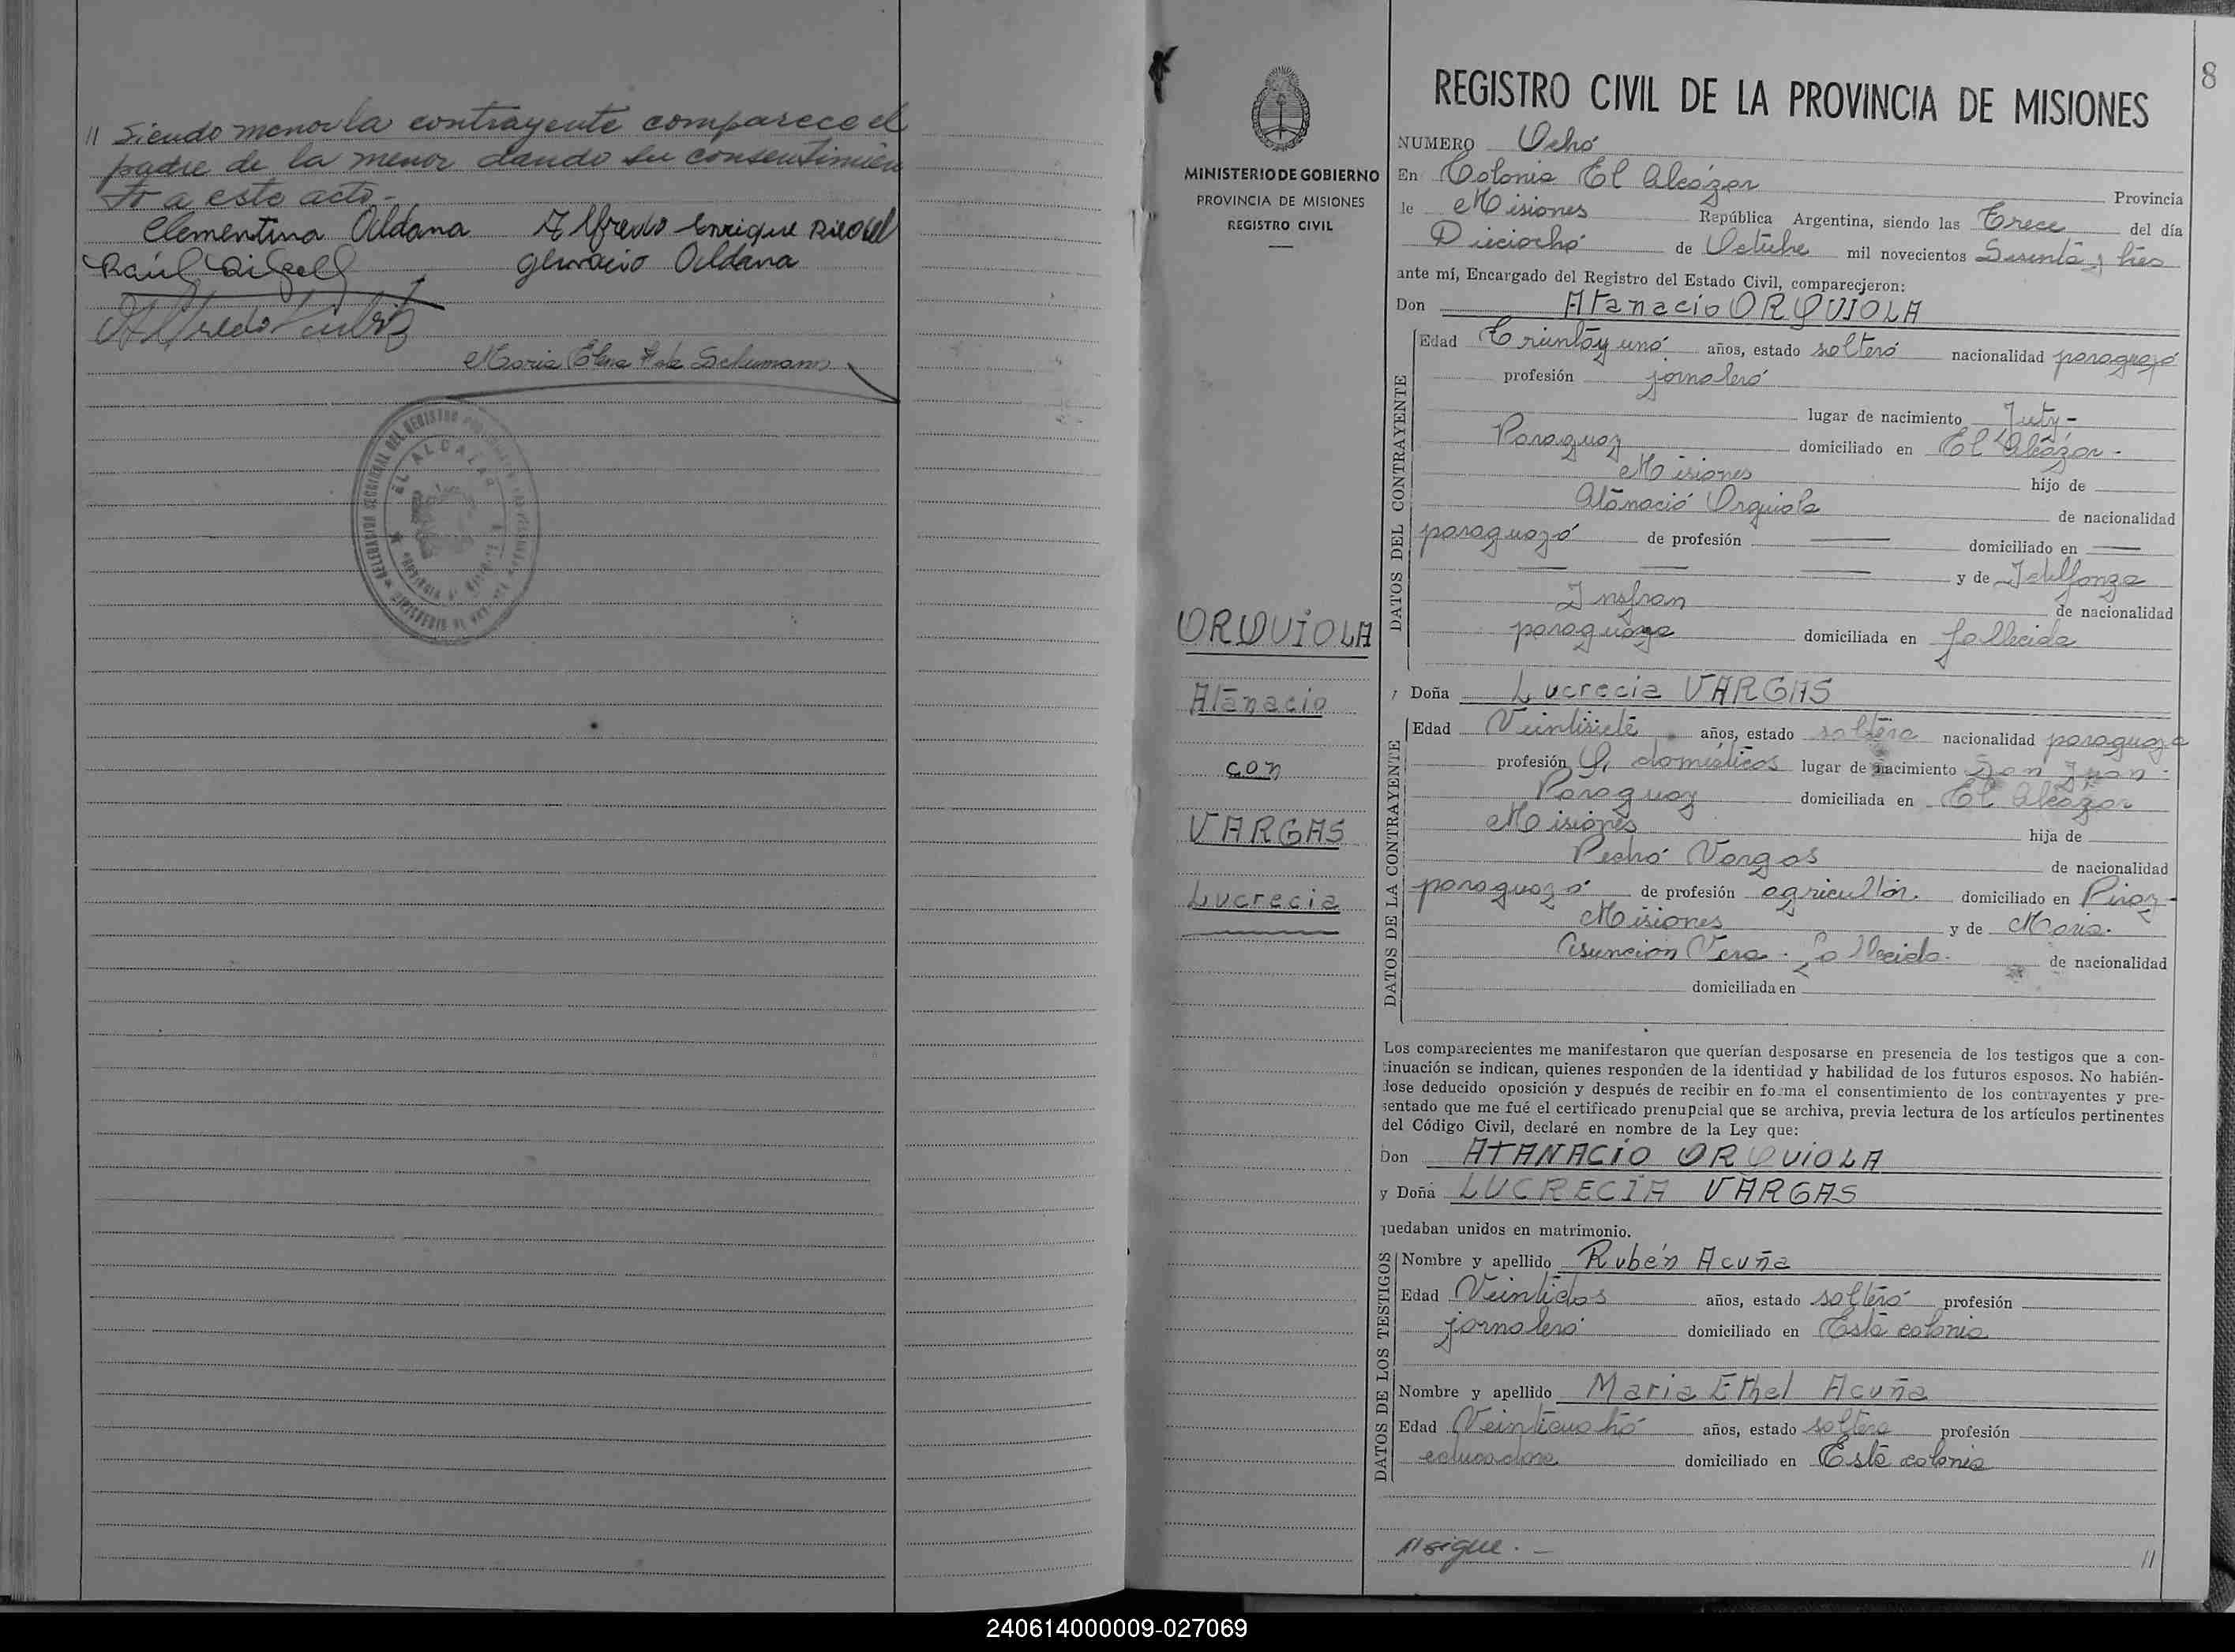 // Siendo menor la contrayente comparece el
padre de la menor dando su consentimien
to a este acto.-
Clementina Aldana Alfredo Enrique
Raúl Gervacio Aldana
Alfredo
Maria Elena H de Schumann
EL ALCAZAR
8
MINISTERIO DE GOBIERNO
PROVINCIA DE MISIONES
REGISTRO CIVIL
ORQUIOLA
Atanacio
con
VARGAS
Lucrecia
REGISTRO CIVIL DE LA PROVINCIA DE MISIONES
NUMERO Ocho
En Colonia El Alcázar Provincia
de Misiones República Argentina, siendo las Trece del día
Dieciocho de Octubre mil novecientos Sesenta y tres
ante mí, Encargado del Registro del Estado Civil, comparecieron:
Don Atanacio ORQUIOLA
DATOS DEL CONTRAYENTE
Edad Treinta y uno años, estado soltero nacionalidad paraguayo
profesión jornalero
lugar de nacimiento Yuty-
Paraguay domiciliado en El Alcázar-
Misiones hijo de
Atanacio Orquiola de nacionalidad
paraguayo de profesión —— domiciliado en ——
—— —— —— y de Idelfonza
Insfran de nacionalidad
paraguaya domiciliada en fallecida
y Doña Lucrecia VARGAS
DATOS DE LA CONTRAYENTE
Edad Veintisiete años, estado soltera nacionalidad paraguaya
profesión Q. domésticos lugar de nacimiento San Juan-
Paraguay domiciliada en El Alcázar
Misiones hija de
Pedro Vargas de nacionalidad
paraguayo de profesión agricultor. domiciliado en Piray-
Misiones y de Maria
Asuncion Vera. fallecida. de nacionalidad
domiciliada en
Los comparecientes me manifestaron que querían desposarse en presencia de los testigos que a con-
tinuación se indican, quienes responden de la identidad y habilidad de los futuros esposos. No habién-
dose deducido oposición y después de recibir en forma el consentimiento de los contrayentes y pre-
sentado que me fué el certificado prenupcial que se archiva, previa lectura de los artículos pertinentes
del Código Civil, declaré en nombre de la Ley que:
Don ATANACIO ORQUIOLA
y Doña LUCRECIA VARGAS
quedaban unidos en matrimonio.
DATOS DE LOS TESTIGOS
Nombre y apellido Rubén Acuña
Edad Veintidos años, estado soltero profesión
jornalero domiciliado en Esta colonia
Nombre y apellido Maria Ethel Acuña
Edad Veinticuatro años, estado soltera profesión
educadora domiciliado en Esta colonia
// sigue.- //
240614000009-027069